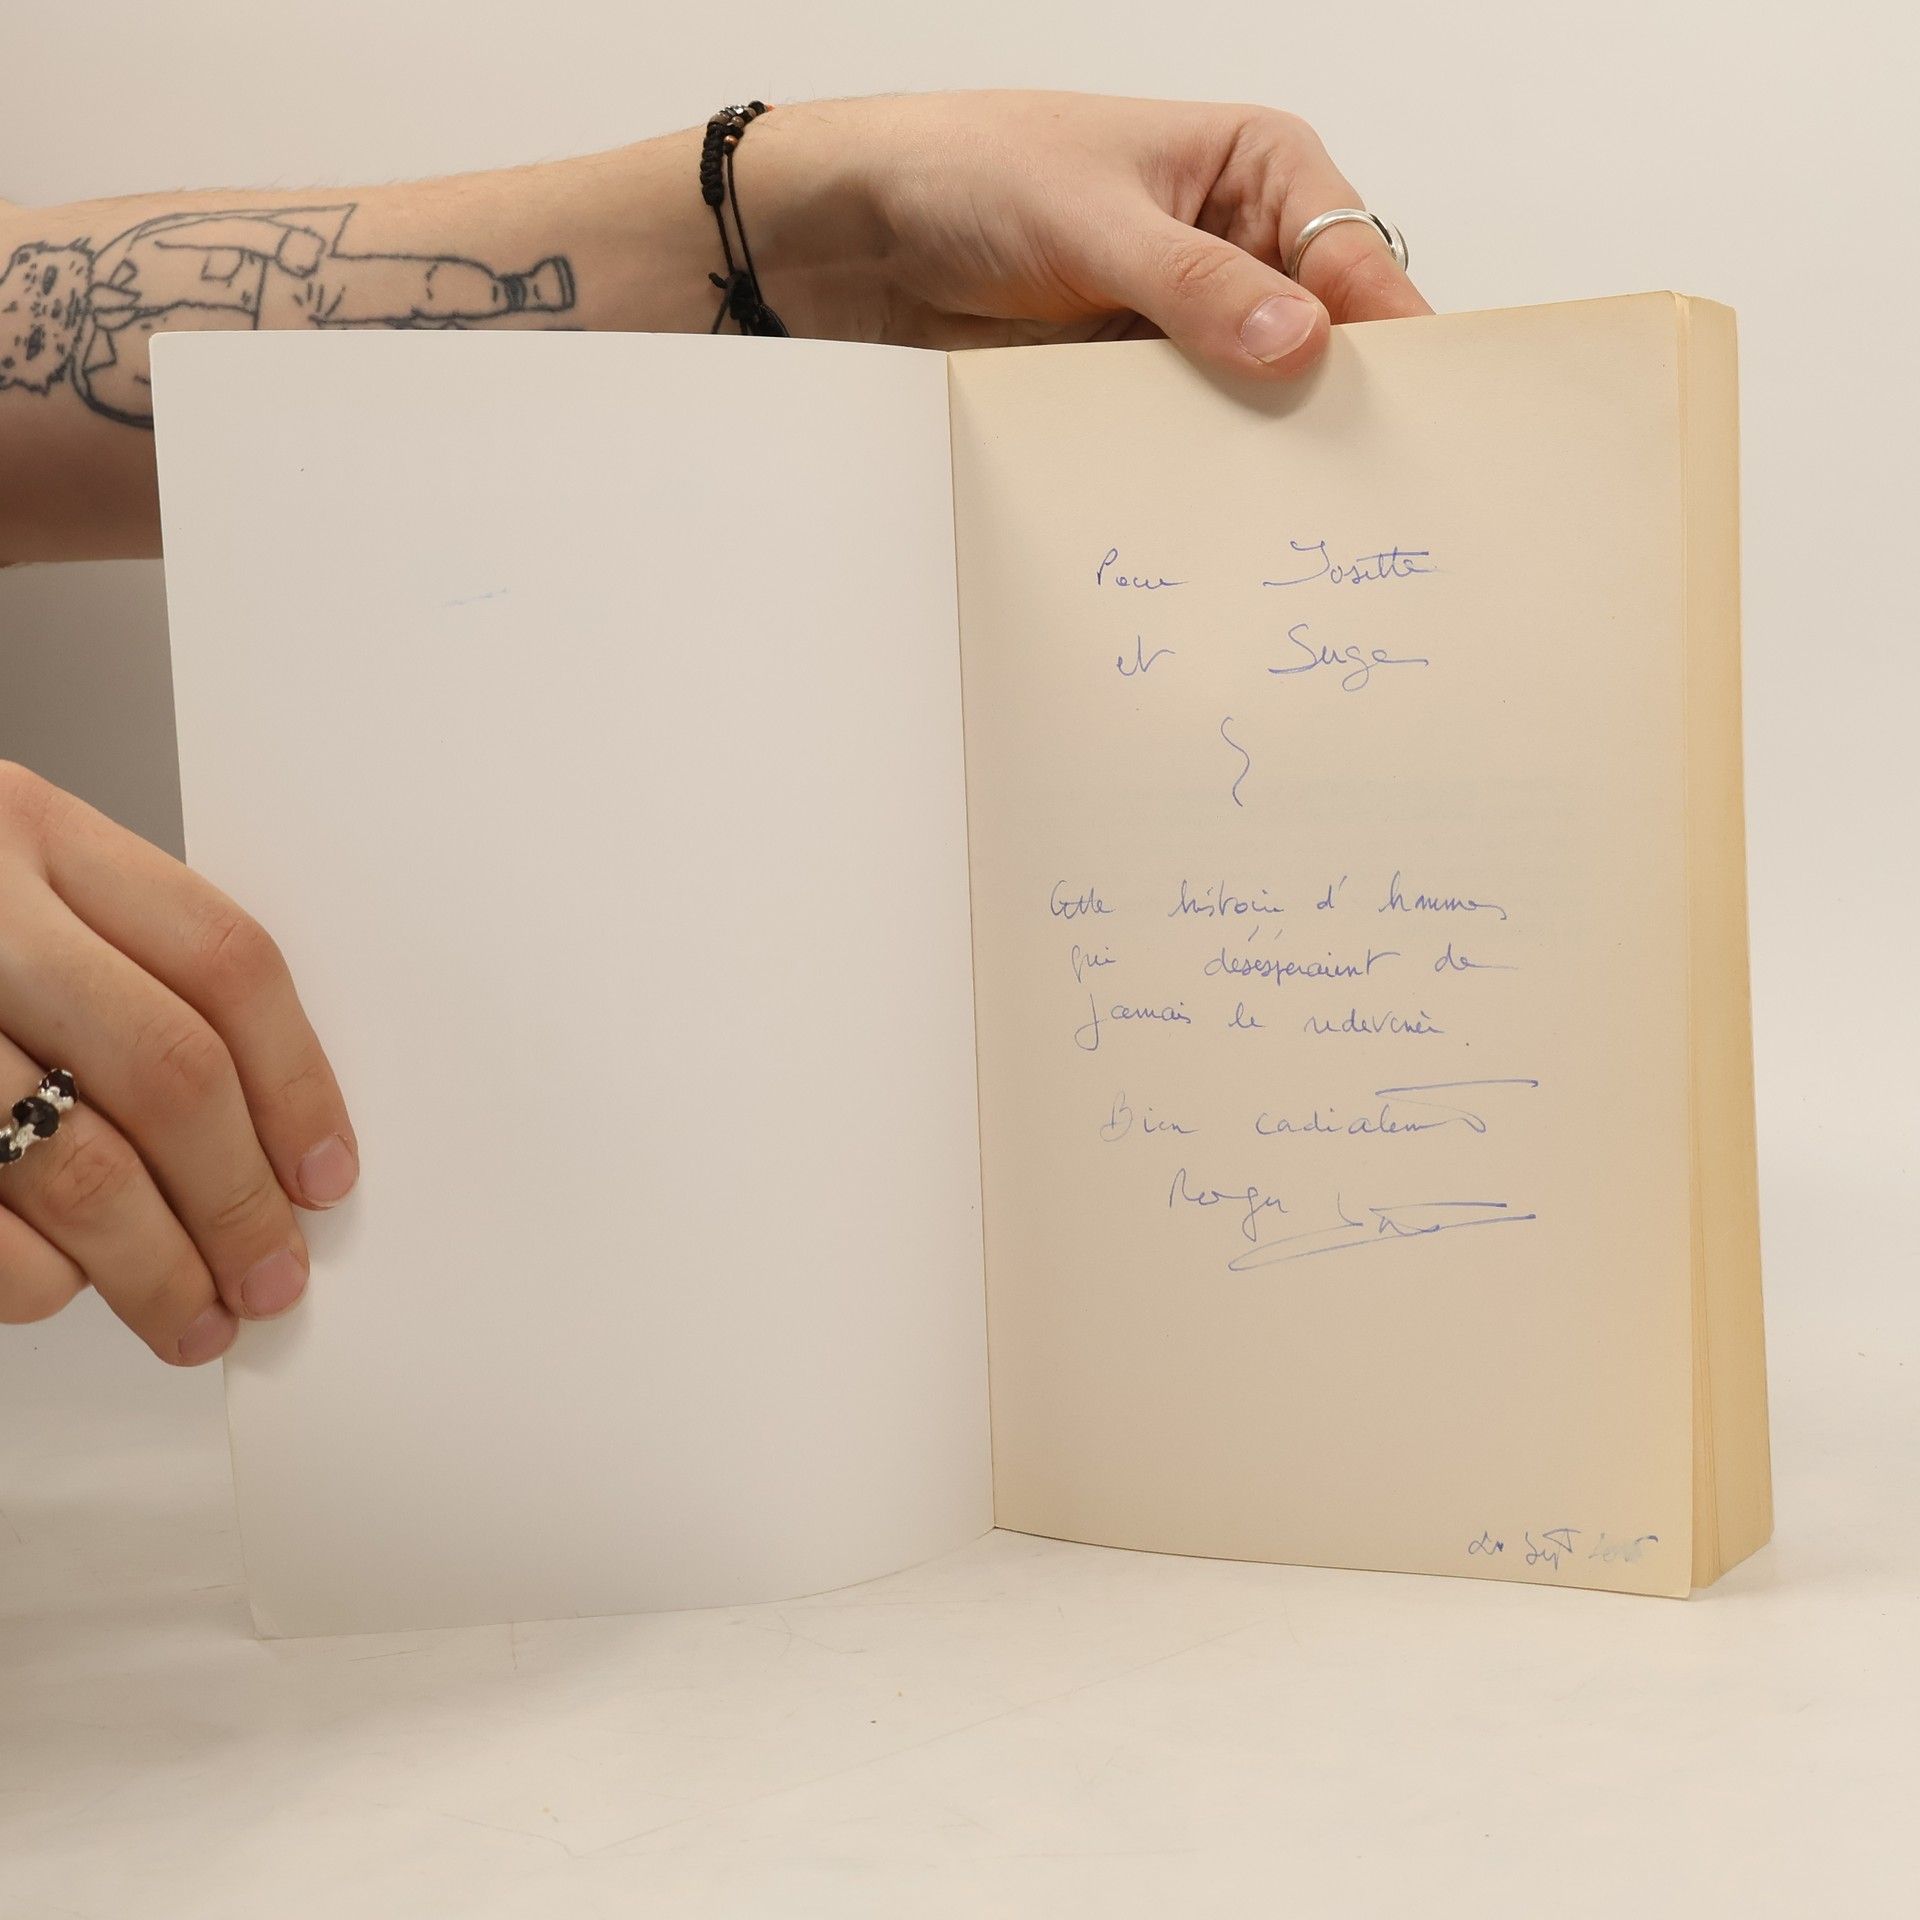 Pour Josette
et Serge
Cette histoire d'hommes
qui désespéraient de
jamais le redevenir.
Bien cordialement
Roger
Sept